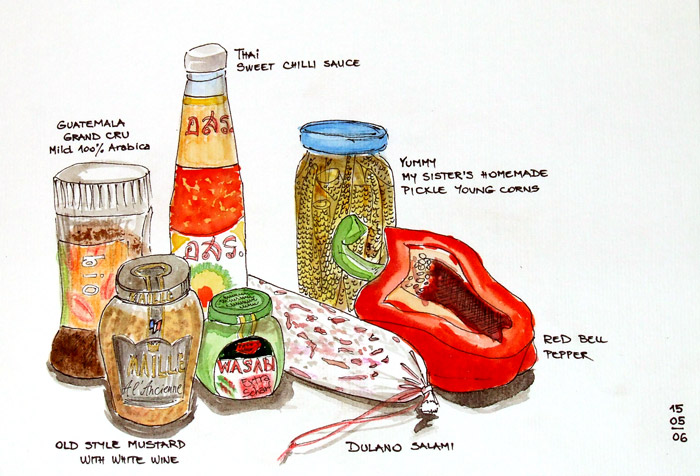 THAI
SWEET CHILLI SAUCE
GUATEMALA
GRAND CRU
Mild 100% Arabica
YUMMY
MY SISTER'S HOMEMADE
PICKLE YOUNG CORNS
อสร.
อสร.
bio
MAILLE
MAILLE
A l'Ancienne
WASABI
EXTRA
RED BELL
PEPPER
OLD STYLE MUSTARD
WITH WHITE WINE
DULANO SALAMI
15
05
06